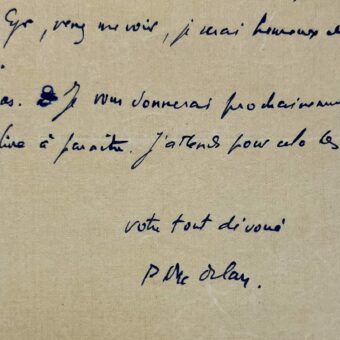 Eyr, venez me voir, je serai heureux de
as. Je vous donnerai prochainement
livre à paraître. J'attends pour cela les
votre tout dévoué
P. Mac Orlan.